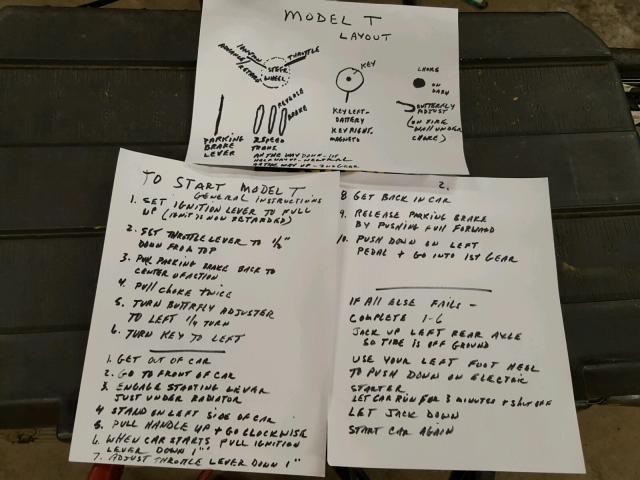 MODEL T
LAYOUT
IGNITION
ADVANCE
RETARD
STEER
WHEEL
THROTTLE
KEY
CHOKE
ON
DASH
BUTTERFLY
ADJUST
(ON FIRE
WALL UNDER
CHOKE)
KEY LEFT-
BATTERY
KEY RIGHT-
MAGNETO
PARKING
BRAKE
LEVER
2 SPEED
TRANS.
REVERSE
BRAKE
ALL THE WAY DOWN - 1ST
HALF WAY UP - NEUTRAL
ALL THE WAY UP - 2ND GEAR
TO START MODEL T
GENERAL INSTRUCTIONS
1. SET IGNITION LEVER TO FULL
UP (IGNIT IS NOW RETARDED)
2. SET THROTTLE LEVER TO
DOWN FROM TOP
3. PULL PARKING BRAKE BACK TO
CENTER OF ACTION
4. PULL CHOKE TWICE
5. TURN BUTTRFLY ADJUSTER
TO LEFT 1/4 TURN
6. TURN KEY TO LEFT
1. GET OUT OF CAR
2. GO TO FRONT OF CAR
3. ENGAGE STARTING LEVER
JUST UNDER RADIATOR
4 STAND ON LEFT SIDE OF CAR
5. PULL HANDLE UP + GO CLOCKWISE
6. WHEN CAR STARTS PULL IGNITION
LEVER DOWN 1"
7. ADJUST THROTTLE LEVER DOWN 1"
2.
8 GET BACK IN CAR
9. RELEASE PARKING BRAKE
BY PUSHING FULL FORWARD
10. PUSH DOWN ON LEFT
PEDAL + GO INTO 1ST GEAR
IF ALL ELSE FAILS -
COMPLETE 1-6
JACK UP LEFT REAR AXLE
SO TIRE IS OFF GROUND
USE YOUR LEFT FOOT HEEL
TO PUSH DOWN ON ELECTRIC
STARTER
LET CAR RUN FOR 3 MINUTES + SHUT OFF
LET JACK DOWN
START CAR AGAIN